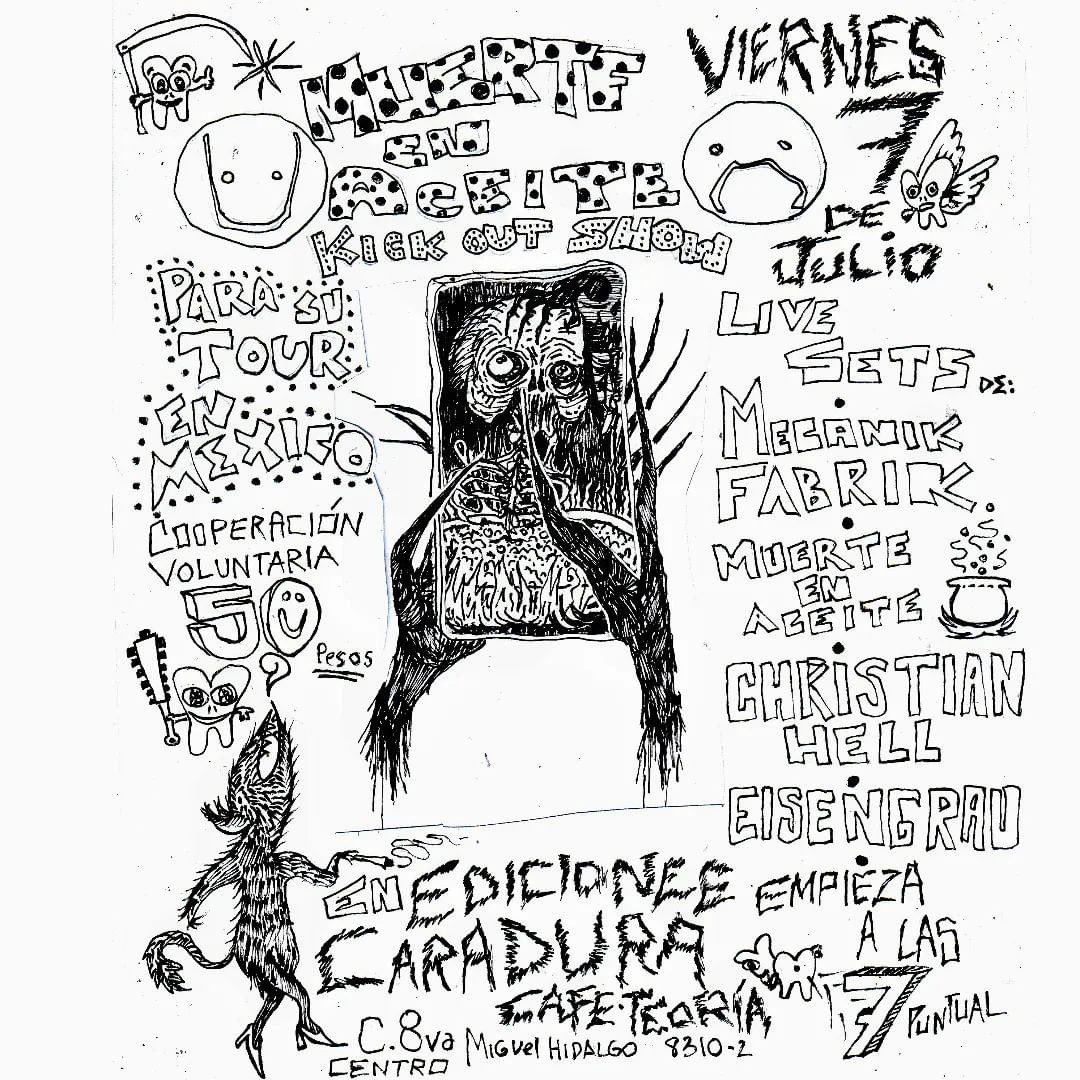 MUERTE
EN
ACEITE
KICK OUT SHOW
VIERNES
7
DE
JULIO
PARA SU
TOUR
EN
MEXICO
COOPERACIÓN
VOLUNTARIA
50
Pesos
LIVE
SETS DE:
MECANIK
FABRIK
MUERTE
EN
ACEITE
CHRISTIAN
HELL
EISENGRAU
EN EDICIONEE
CARADURA
CAFE-TEORÍA
C. 8va MIGUEL HIDALGO 8310-2
CENTRO
EMPIEZA
A LAS
7 PUNTUAL